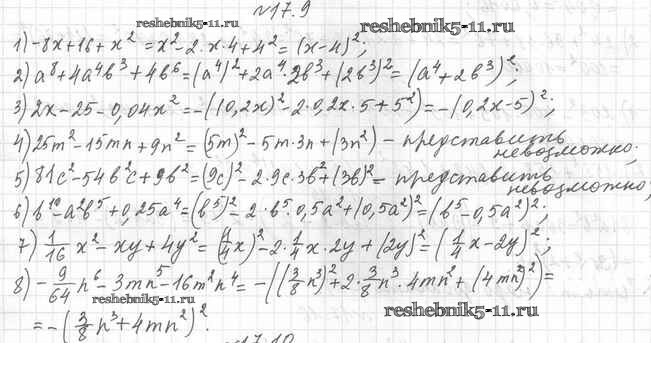 №17.9
reshebnik5-11.ru
reshebnik5-11.ru
1) -8x+16+x²=x²-2·x·4+4²=(x-4)²;
2) a⁸+4a⁴b³+4b⁶=(a⁴)²+2a⁴·2b³+(2b³)²=(a⁴+2b³)²;
3) 2x-25-0,04x²=-((0,2x)²-2·0,2x·5+5²)=-(0,2x-5)²;
4) 25m²-15mn+9n²=(5m)²-5m·3n+(3n²) - представить
невозможно;
5) 81c²-54b²c+9b²=(9c)²-2·9c·3b²+(3b)² - представить
невозможно;
6) b¹⁰-a²b⁵+0,25a⁴=(b⁵)²-2·b⁵·0,5a²+(0,5a²)²=(b⁵-0,5a²)²;
7) 1/16 x²-xy+4y²=(1/4x)²-2·1/4x·2y+(2y)²=(1/4x-2y)²;
8) -9/64 n⁶-3mn⁵-16m²n⁴=-((3/8n³)²+2·3/8n³·4mn²+(4mn²)²)=
reshebnik5-11.ru
=-(3/8n³+4mn²)².
reshebnik5-11.ru